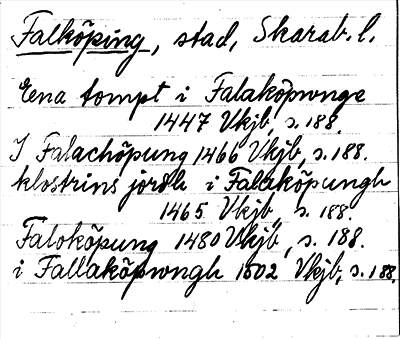 Falköping, stad, Skarab. l.
Eena tompt i Falaköpwnge
1447 Vkjb, s. 188.
I Falachöpung 1466 Vkjb, s. 188.
klostrins jordh i Falaköpungh
1465 Vkjb, s. 188.
Faloköpung 1480 Vkjb, s. 188.
i Fallaköpwngh 1502 Vkjb, s. 188.